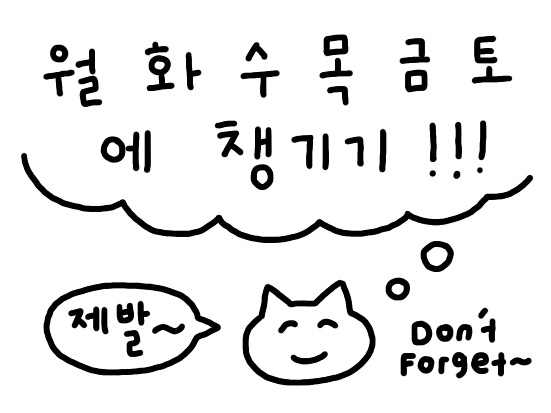 월 화 수 목 금 토
에 챙기기 !!!
제발~
Don't
Forget~